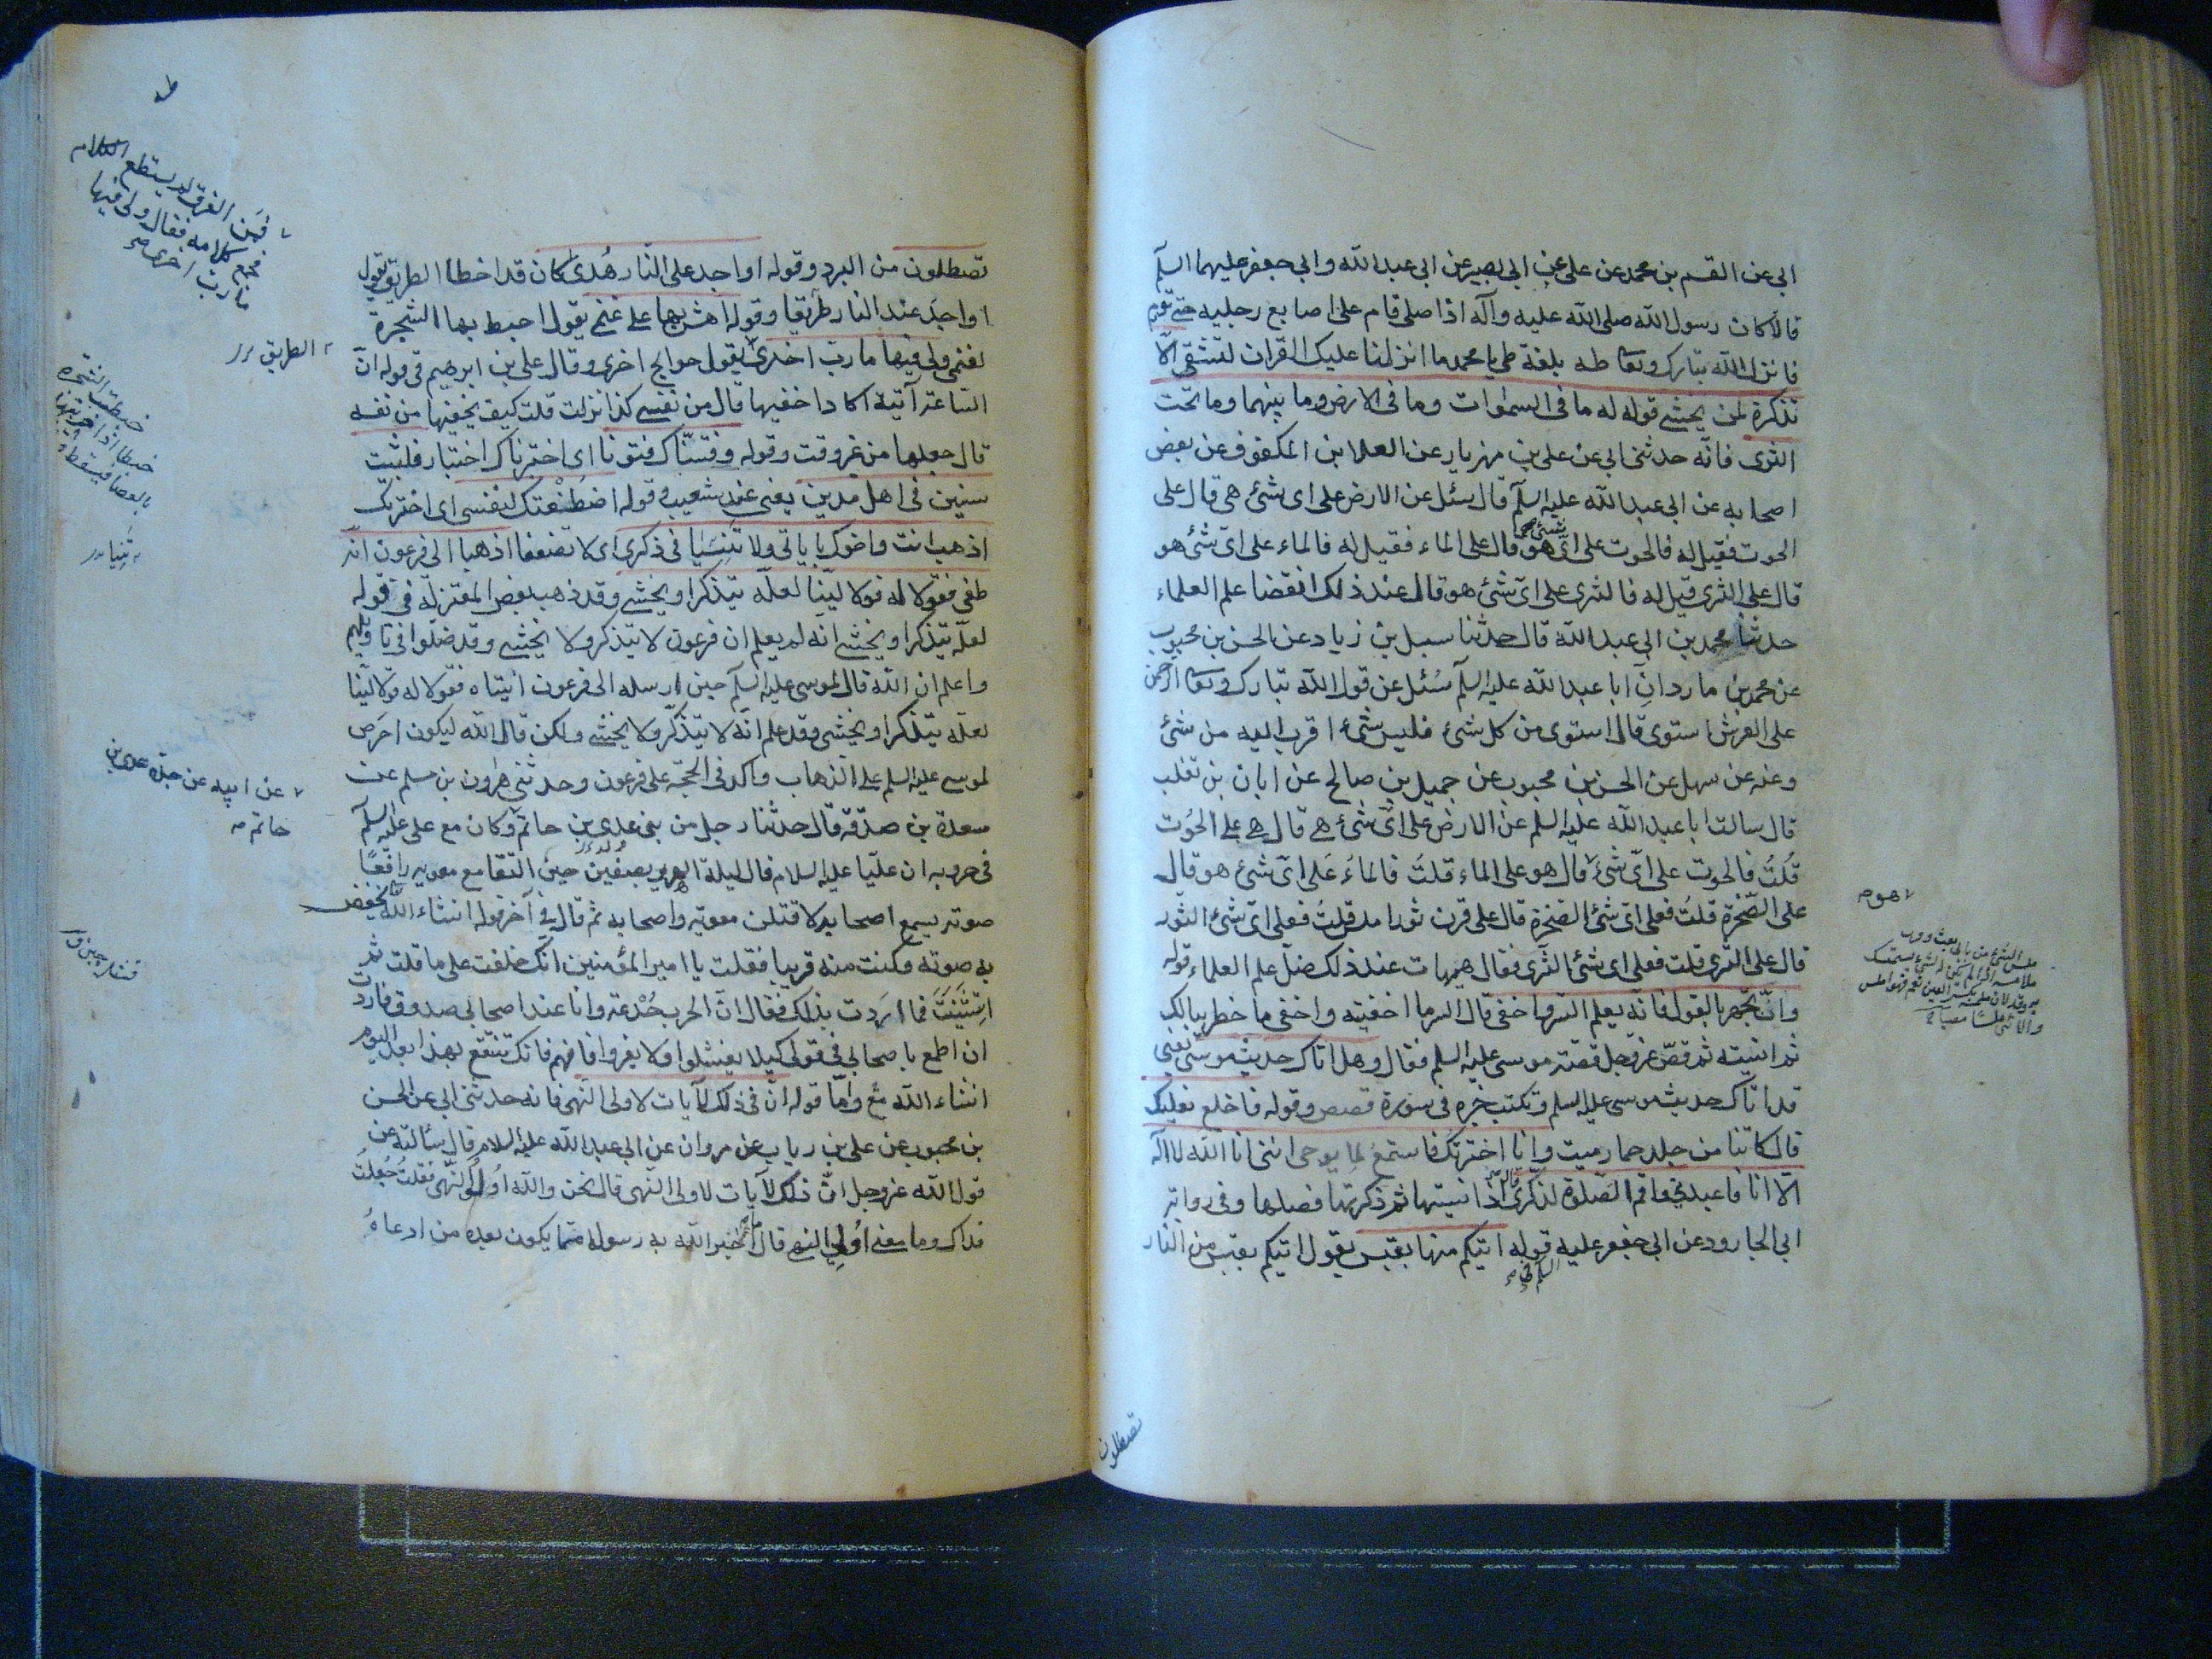 ابي عن القسم بن محمد عن علي عن ابي بصير عن ابي عبد الله وابي جعفر عليهما السلم
قالا كان رسول الله صلى الله عليه وآله اذا صلى قام على اصابع رجليه حتى تورم
فانزل الله تبارك وتعا طه بلغة طي يا محمد ما انزلنا عليك القران لتشقى الّا
تذكرة لمن يخشى قوله له ما في السموات وما في الارض وما بينهما وما تحت
الثرى فانّه حدثني ابي عن علي بن مهزيار عن العلا بن المكفوف عن بعض
اصحابه عن ابي عبد الله عليه السلم قال سئل عن الارض على اي شئ هي قال على
الحوت فقيل له فالحوت على ايّ شئ هو قال على الماء فقيل له فالماء على ايّ شئ هو
قال على الثرى قيل له فالثرى على ايّ شئ هو قال عند ذلك انقضا علم العلماء
حدثنا محمد بن ابي عبد الله قال حدثنا سهل بن زياد عن الحسن بن محبوب
عن محمد بن مارد انّ ابا عبد الله عليه السلم سُئل عن قول الله تبارك وتعا الرحمن
على العرش استوى قال استوى من كل شئ فليس شئ اقرب اليه من شئ
وعنه عن سهل عن الحسن بن محبوب عن جميل بن صالح عن ابان بن تغلب
قال سالت ابا عبد الله عليه السلم عن الارض على ايّ شئ هي قال هي على الحُوت
قُلتُ فالحوت على ايّ شئ قال هو على الماء قلتُ فالماءَ عَلى ايّ شئ هو قال
على الصّخرة قلتُ فعلى ايّ شئ الصّخرة قال على قرن ثور املس قلتُ فعلى ايّ شئ الثور
قال على الثرى قلت فعلى اي شئ الثّرى فقال هيهات عند ذلك ضلّ علم العلماء قوله
وانْ تجهر بالقول فانّه يعلم السّر واخفى قال السر ما اخفيته واخفى ما خطر ببالك
ثم انسيته ثم قصّ عزوجل قصّة موسى عليه السلم فقال وهل اتاك حديث موسى يعني
قد اتاك حديث موسى عليه السلم ونكتب خبره في سورة قصص وقوله فاخلع نعليك
قال كانتا من جلد حمار ميت وانا اخترتك فاستمع لما يوحى انني انا الله لا اله
الّا انا فاعبدني واقم الصّلوة لذكرى قال اذا نسيتها ثم ذكرتها فصلها وفي رواية
ابي الجارود عن ابي جعفر عليه السلم في قوله اتيكم منها بقبس يقول اتيكم بقبس من النار
هو
تصطلون
طه
تصطلون من البرد وقوله او اجد على النّار هُدىً كان قد اخطأ الطريق يقول
او اجد عند النار طريقا وقوله اهش بها على غنمي يقول اخبط بها الشجرة
لغنمي ولي فيها مارب اخرى يقول حوايج اخرى وقال علي بن ابرهيم في قوله انّ
السّاعة آتية اكاد اخفيها قال من نفسي كذا نزلت قلت كيف يخفيها من نفسه
قال جعلها من غير وقت وقوله وفتنّاك فتونا اي اختبرناك اختبار فلبثت
سنين في اهل مدين يعني عند شعيب وقوله اصْطنعتك لنفسي اي اخترتك
اذهب انت واخوك باياتي ولا تَنِيَا في ذكرى اي لا تضعفا اذهبا الى فرعون انّه
طغى فقولا له قولا ليّنا لعلّه يتذكر او يخشى وقد ذهب بعض المعتزلة في قوله
لعلّه يتذكر او يخشى انّه لم يعلم ان فرعون لا يتذكر ولا يخشى وقد ضلّوا في تاويلهم
واعلم ان الله قال لموسى عليه السلم حين ارسله الى فرعون ائتياه فقولا له قولا ليّنا
لعلّه يتذكر او يخشى وقد علم انّه لا يتذكر ولا يخشى ولكن قال الله ليكون احرَص
لموسى عليه السلم على الذهاب واكد في الحجّة على فرعون وحدثني هرون بن مسلم عن
مسعدة بن صدقة قال حدثنا رجل من بني عدى بن حاتم وكان مع علي عليه السلم
في حروبه ان عليّا عليه السلام قال ليلة الهرير بصفين حين التقا مع معويه رافعًا
صوته يسمع اصحابه لاقتلن معويه واصحابه ثم قال في آخر قوله انشاء الله يخفض
به صوته وكنت منه قريبا فقلت يا امير المؤمنين انّك حلفت على ما قلت ثم
استثنَيتَ فما اردت بذلك فقال انّ الحرب خُدْعة وانا عند اصحابي صدوق فاردت
ان اطمع اصحابي في قولى كيلا يفشلوا ولا يفروا فافهم فانّك تنتفع بهذا بعد اليوم
انشاء الله تع وامّا قوله انّ في ذلك لآيات لاولى النّهى فانه حدثني ابي عن الحسن
بن محبوب عن علي بن رياب عن مروان عن ابي عبد الله عليه السلام قال سئالته عن
قول الله عزوجل انّ في ذلك لآيات لاولى النّهى قال نحن والله اُولُوا النّهى فقلتُ جُعلتُ
فداك وما معنى اُولي النهى قال ما اخبر الله به رسوله ممّا يكون بعده من ادعاهُ
الطريق
خبطت الشجرة
خبطا اذا ضربتها
بالعصا فيسقط
تَنِيَا
عن ابيه عن جدّه عدى بن
حاتم